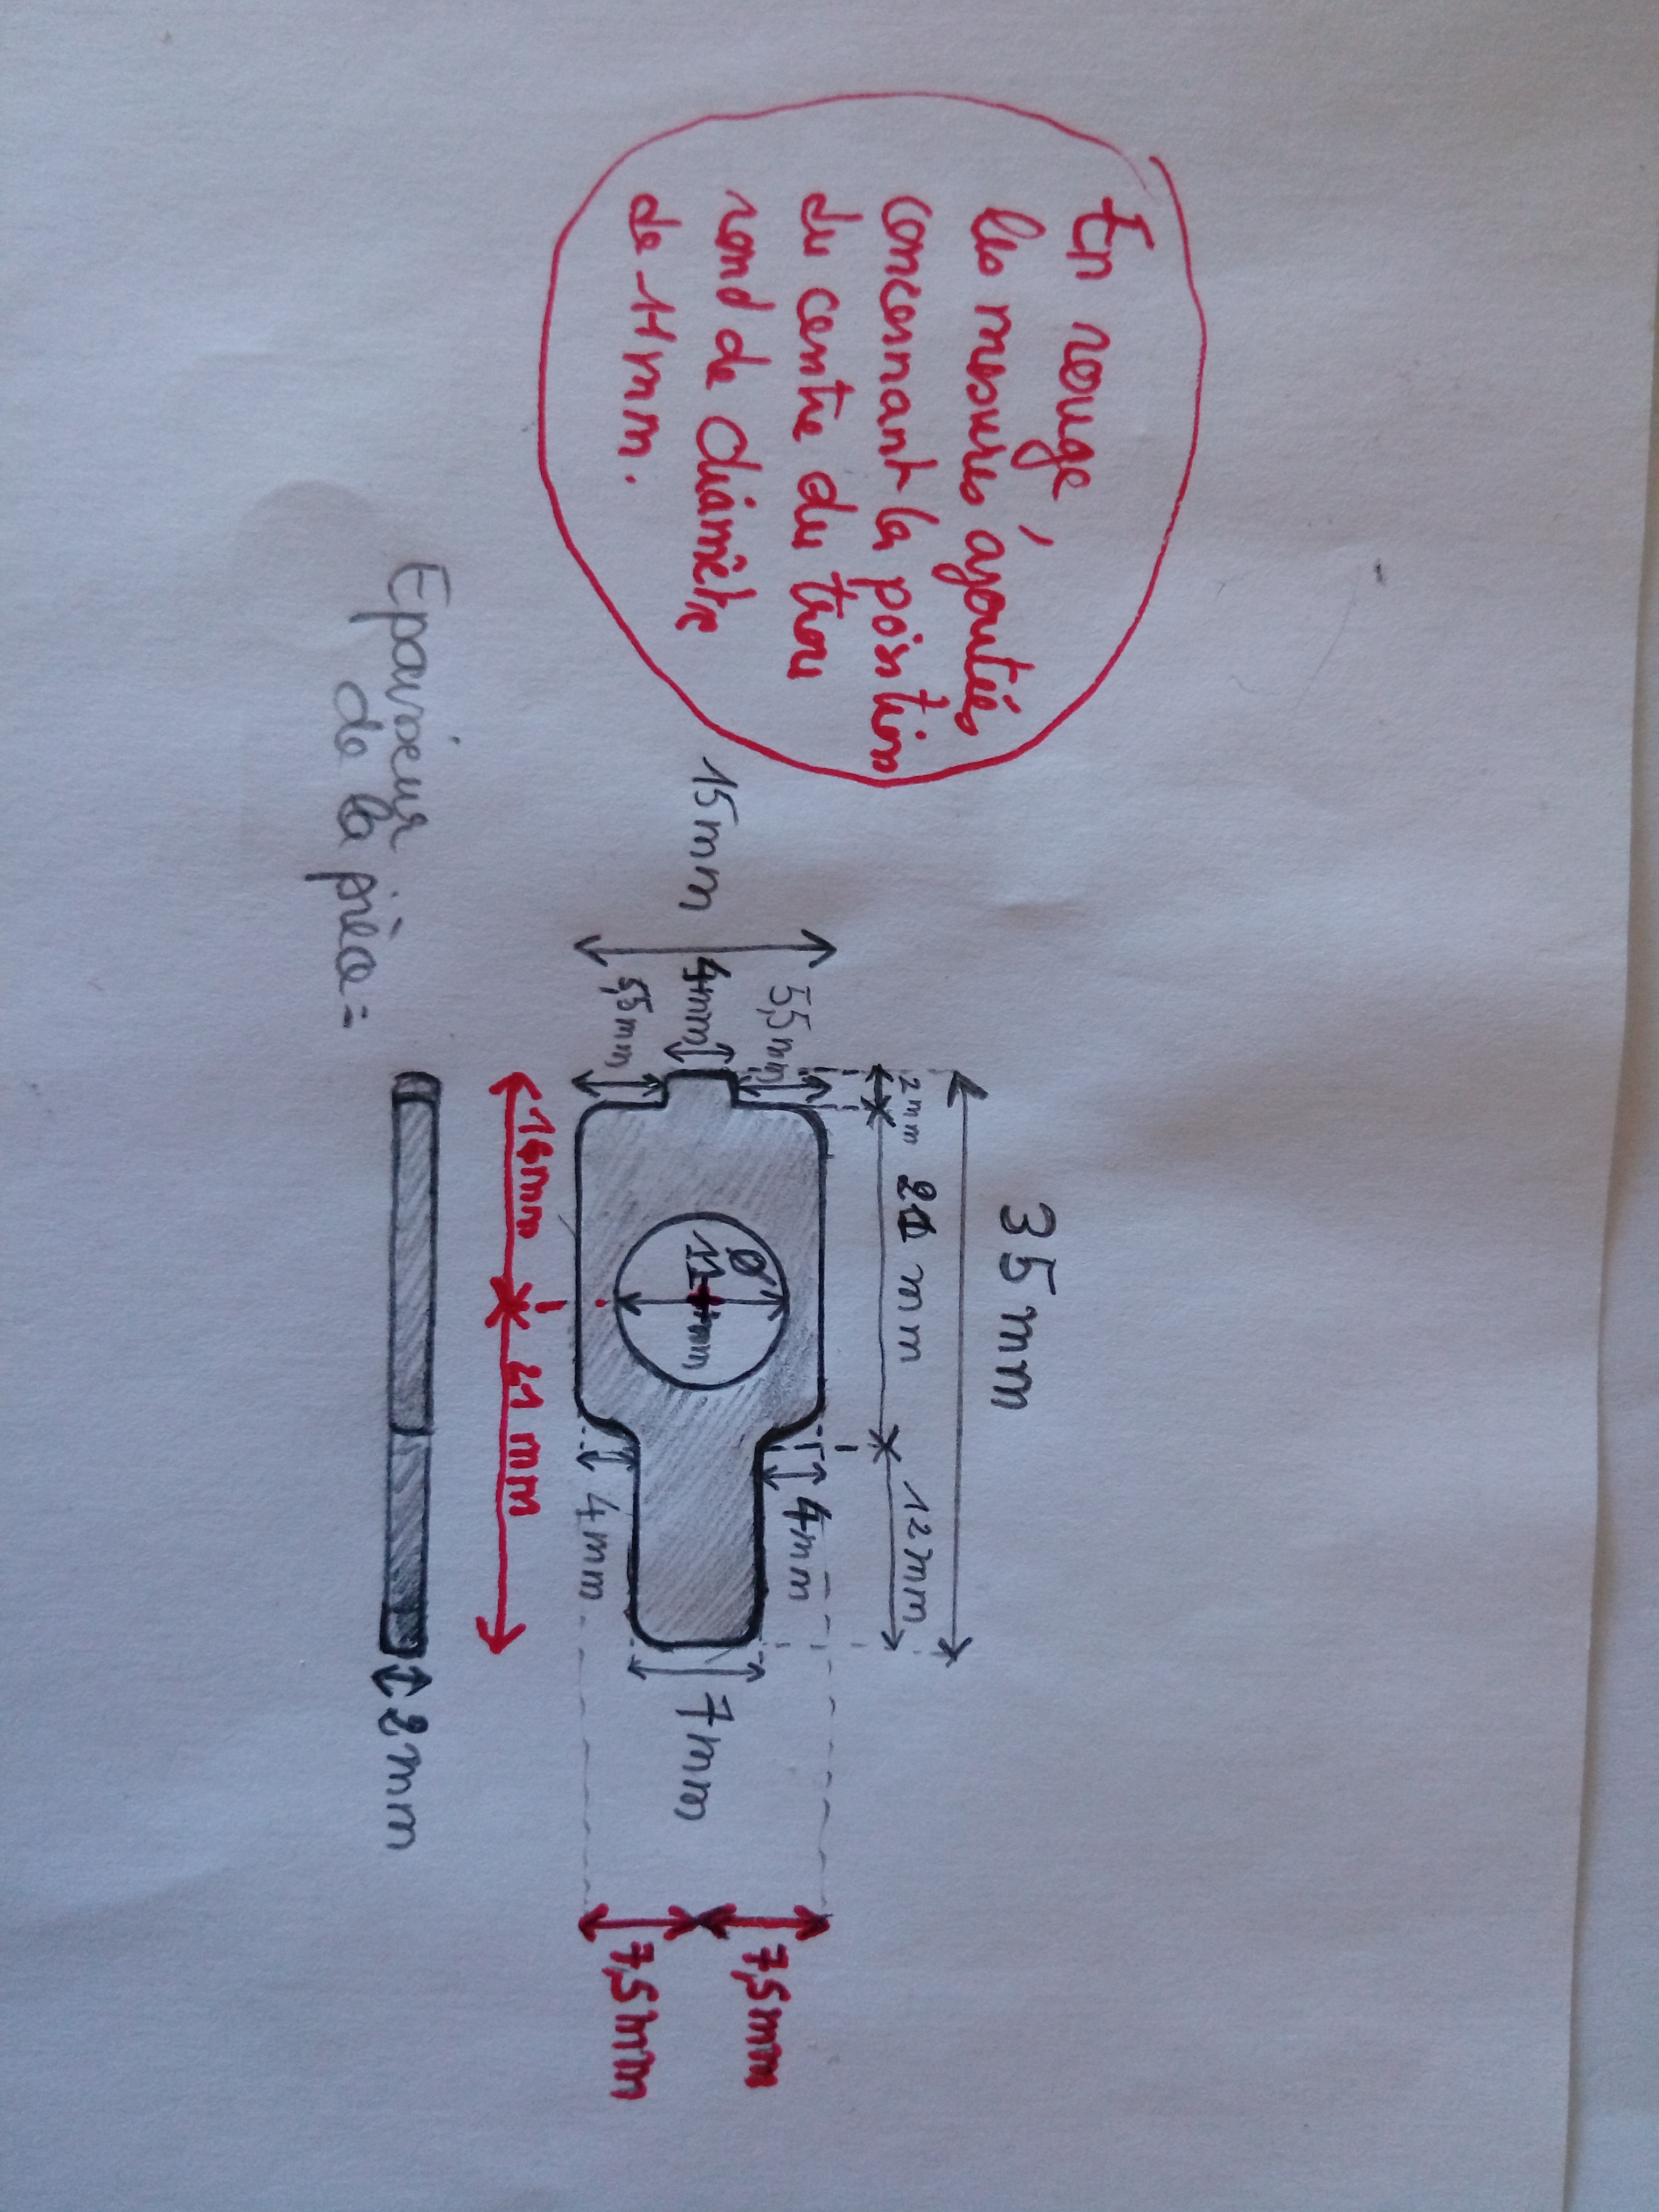 En rouge,
les mesures ajoutées
concernant la position
du centre du trou
rond de diamètre
de 11mm.
35mm
2mm
21 mm
12mm
15mm
5,5mm
4mm
5,5mm
Ø
11mm
4mm
4mm
7mm
7,5mm
7,5mm
14mm
21 mm
Epaisseur
de la pièce =
2mm